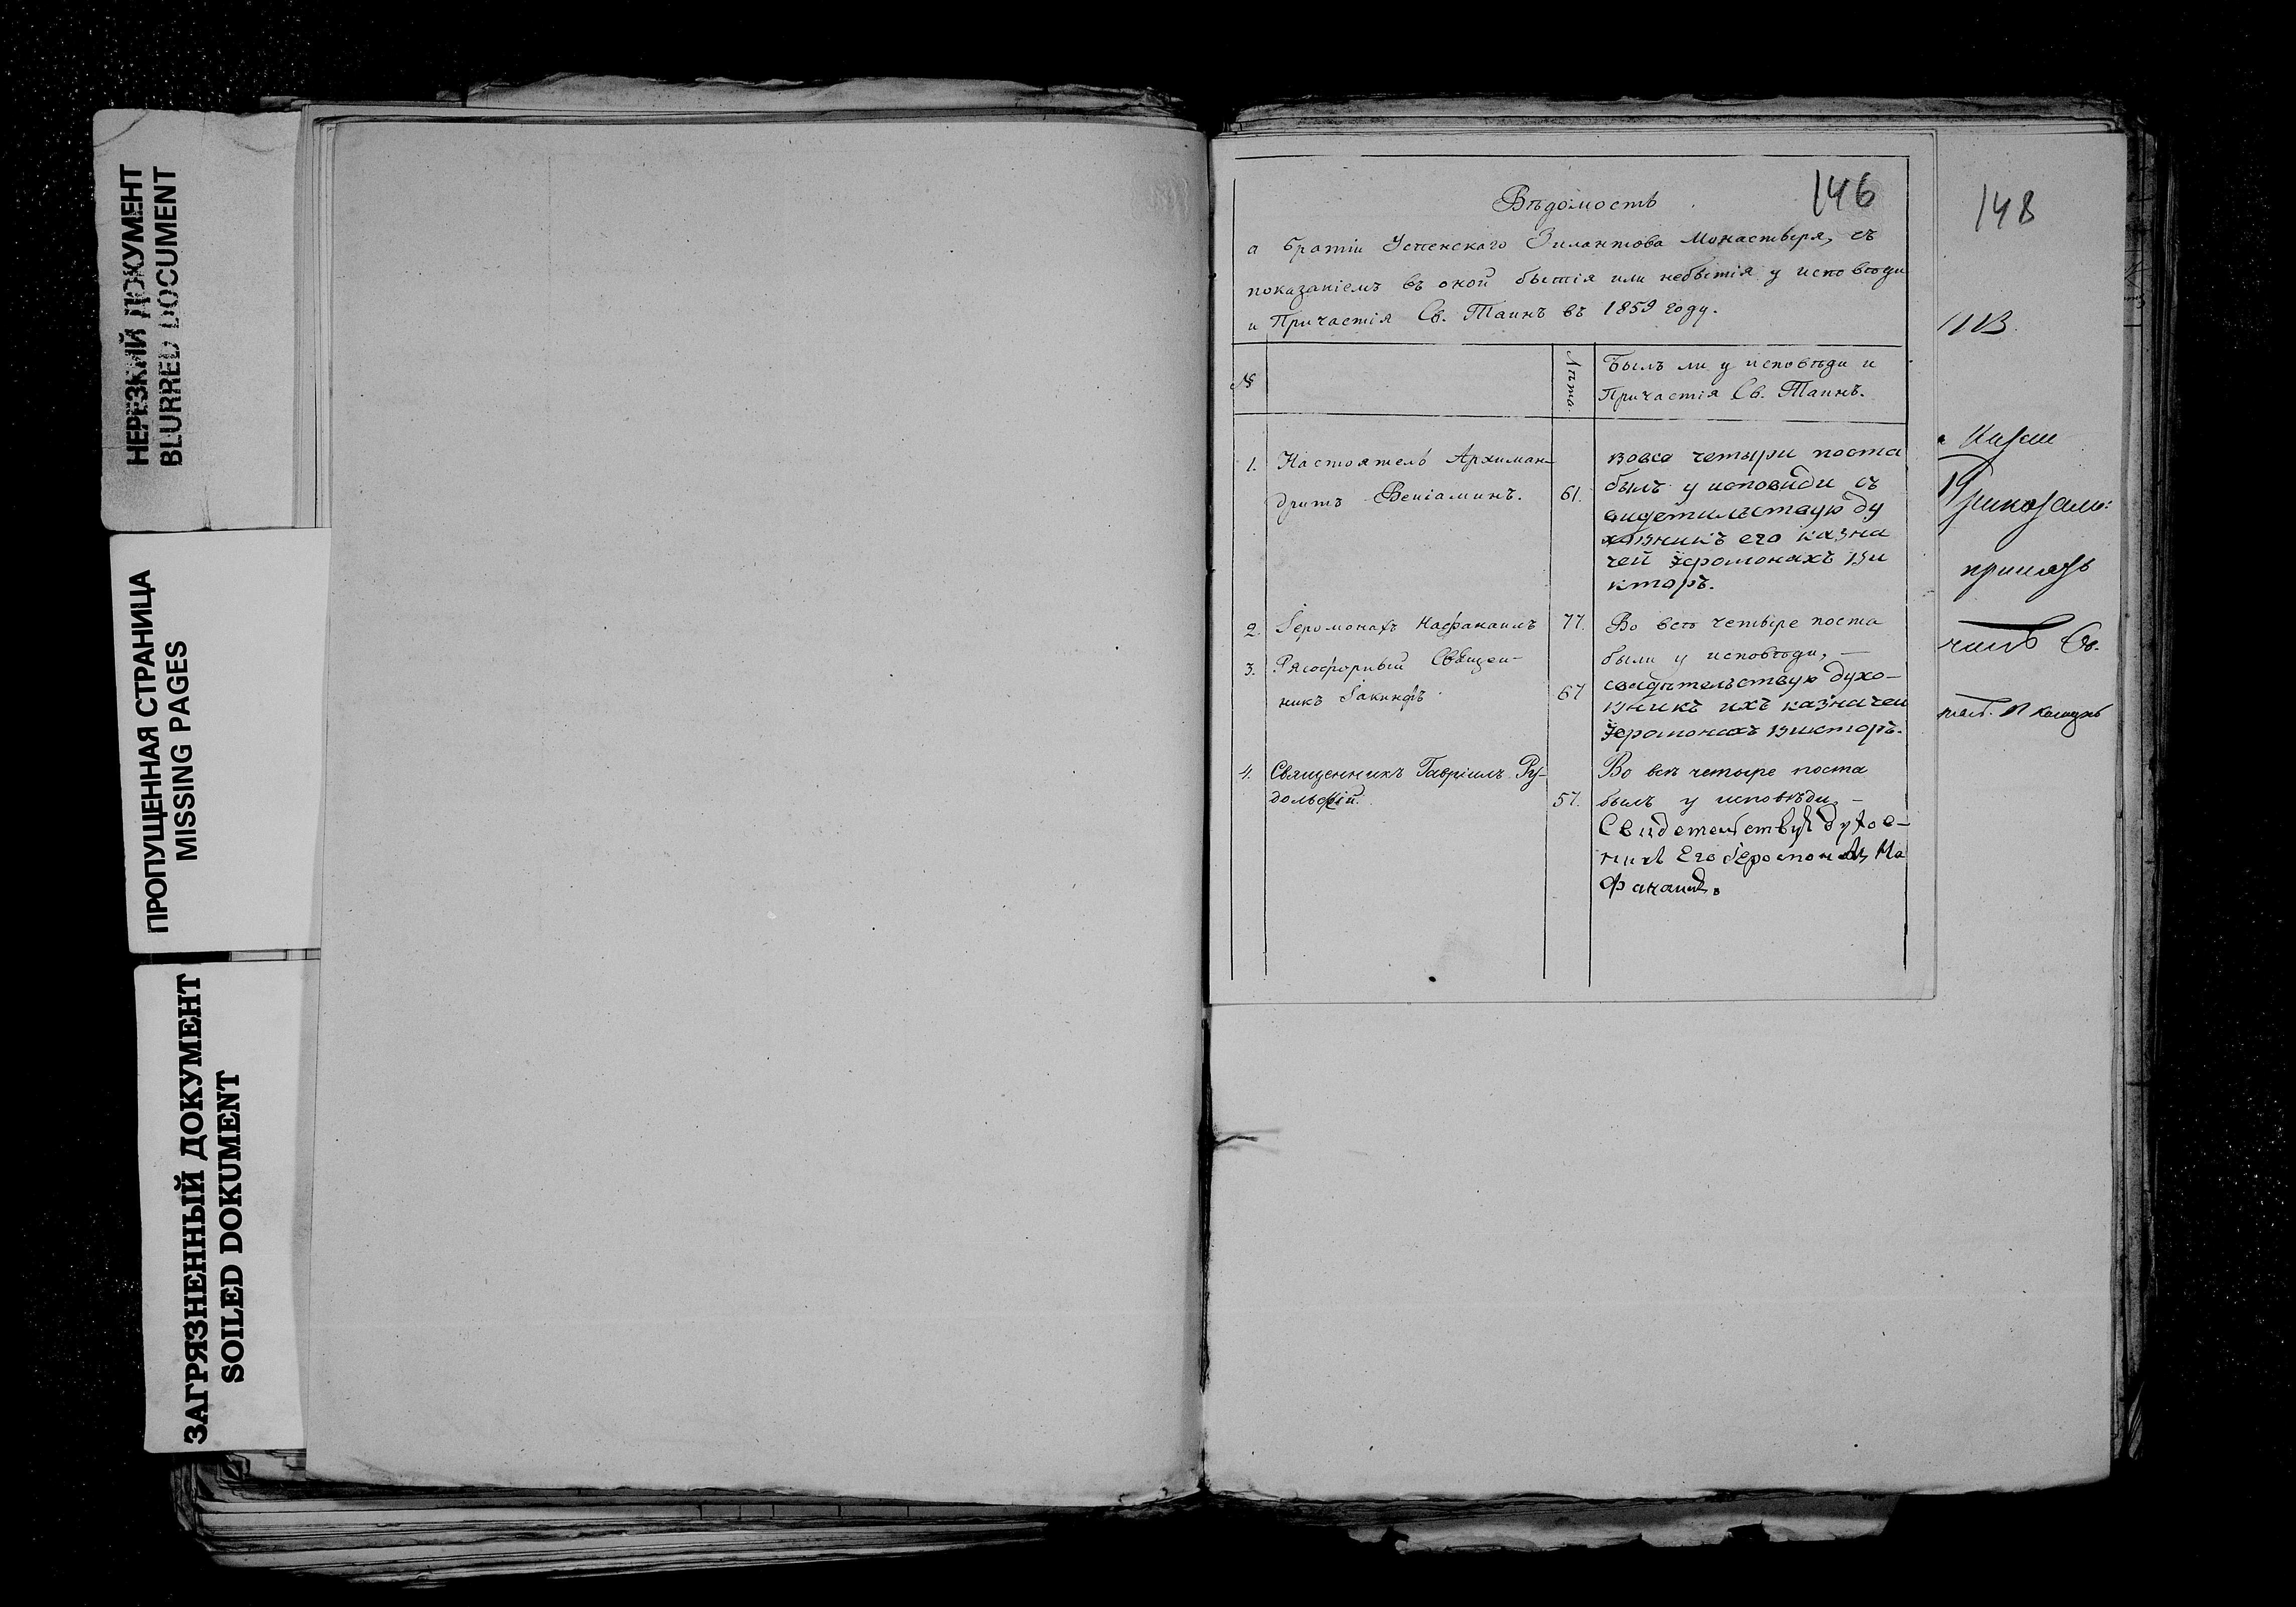 НЕРЕЗКИЙ ДОКУМЕНТ
BLURRED DOCUMENT
ПРОПУЩЕННАЯ СТРАНИЦА
MISSING PAGES
ЗАГРЯЗНЕННЫЙ ДОКУМЕНТ
SOILED DOKUMENT
146
Вѣдомость
а братіи Успенскаго Зилантова Монастыря, съ
показаніемъ въ оной бытія или небытія у исповѣди
и Причастія Св. Таинъ въ 1859 году.
№
Лѣта.
Былъ ли у исповѣди и
Причастія Св. Таинъ.
1. Настоятель Архиман-
дритъ Веніаминъ.
61.
вовсѣ четыри поста
былъ у исповиди съ
видетильствую ду
ховникъ его казна
чей Іеромонахъ Ви
кторъ.
2. Іеромонахъ Нафанаилъ
77.
3. Рясофорный Священ-
никъ Іакинфъ
67
Во всѣ четыре поста
были у исповѣди, —
свидѣтельствую духо-
вникъ ихъ казначей
Іеромонахъ Викторъ.
4. Священникъ Гавріилъ Ру-
дольскій.
57.
Во всѣ четыре поста
былъ у исповѣди, —
Свидетельствую духов-
никъ Его Іеромонахъ На
фанаилъ.
148
113.
Приказали: